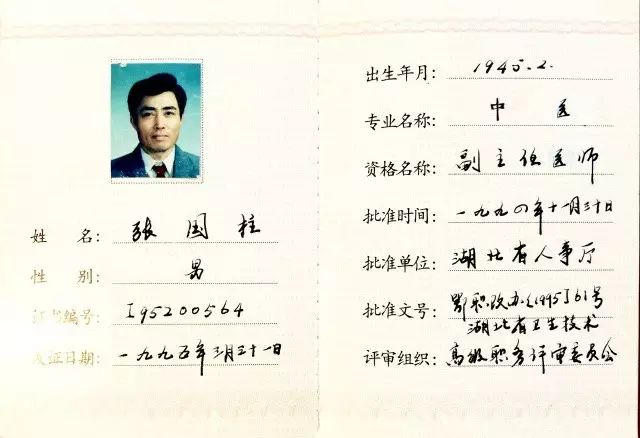 姓 名: 张国柱
性 别: 男
证书编号: I95200564
发证日期: 一九九五年三月三十一日
出生年月: 1945.2.
专业名称: 中 医
资格名称: 副主任医师
批准时间: 一九九四年十一月三十日
批准单位: 湖北省人事厅
批准文号: 鄂职改办〔1995〕61号
湖北省卫生技术
评审组织: 高级职务评审委员会